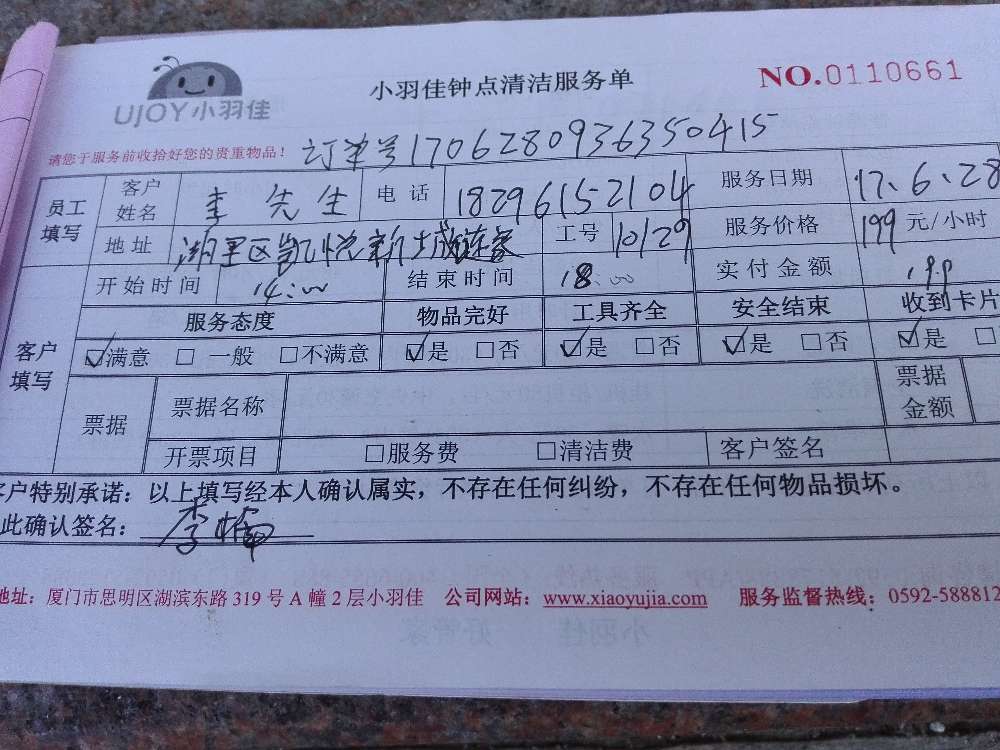 UJOY小羽佳
小羽佳钟点清洁服务单
NO.0110661
请您于服务前收拾好您的贵重物品！ 订单号17062809363504​15
员工填写 客户姓名 李 先生 电话 18296152104 服务日期 17.6.28
地址 湖里区凯悦新城 工号 10129 服务价格 199 元/小时
客户填写 开始时间 14:00 结束时间 18:00 实付金额 199
服务态度 物品完好 工具齐全 安全结束 收到卡片
☑满意 □ 一般 □不满意 ☑是 □否 ☑是 □否 ☑是 □否 ☑是 □
票据 票据名称 票据金额
开票项目 □服务费 □清洁费 客户签名
客户特别承诺：以上填写经本人确认属实，不存在任何纠纷，不存在任何物品损坏。
此确认签名：李楠
地址：厦门市思明区湖滨东路 319 号 A 幢 2 层小羽佳 公司网站：www.xiaoyujia.com 服务监督热线：0592-588812